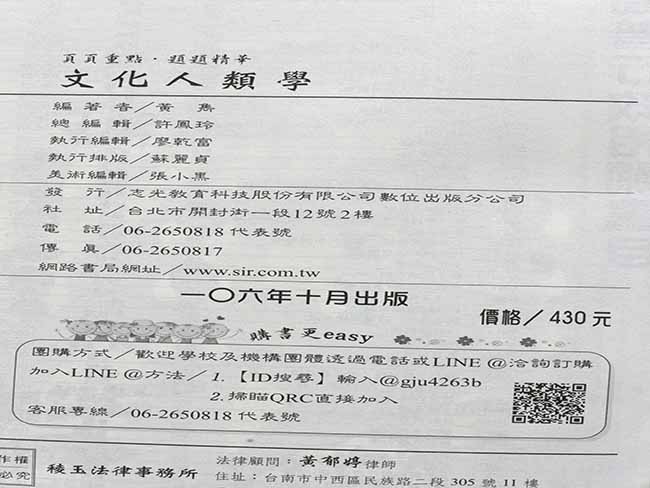 頁頁重點・題題精華
文化人類學
編著者／黃雋
總編輯／許鳳玲
執行編輯／廖乾富
執行排版／蘇麗貞
美術編輯／張小黑
發行／志光教育科技股份有限公司數位出版分公司
社址／台北市開封街一段12號2樓
電話／06-2650818代表號
傳真／06-2650817
網路書局網址／www.sir.com.tw
一〇六年十月出版
價格／430元
購書更easy
團購方式／歡迎學校及機構團體透過電話或LINE @洽詢訂購
加入LINE @方法／1.【ID搜尋】輸入@gju4263b
2.掃瞄QRC直接加入
客服專線／06-2650818代表號
作權
必究
稜玉法律事務所
法律顧問：黃郁婷律師
住址：台南市中西區民族路二段305號11樓